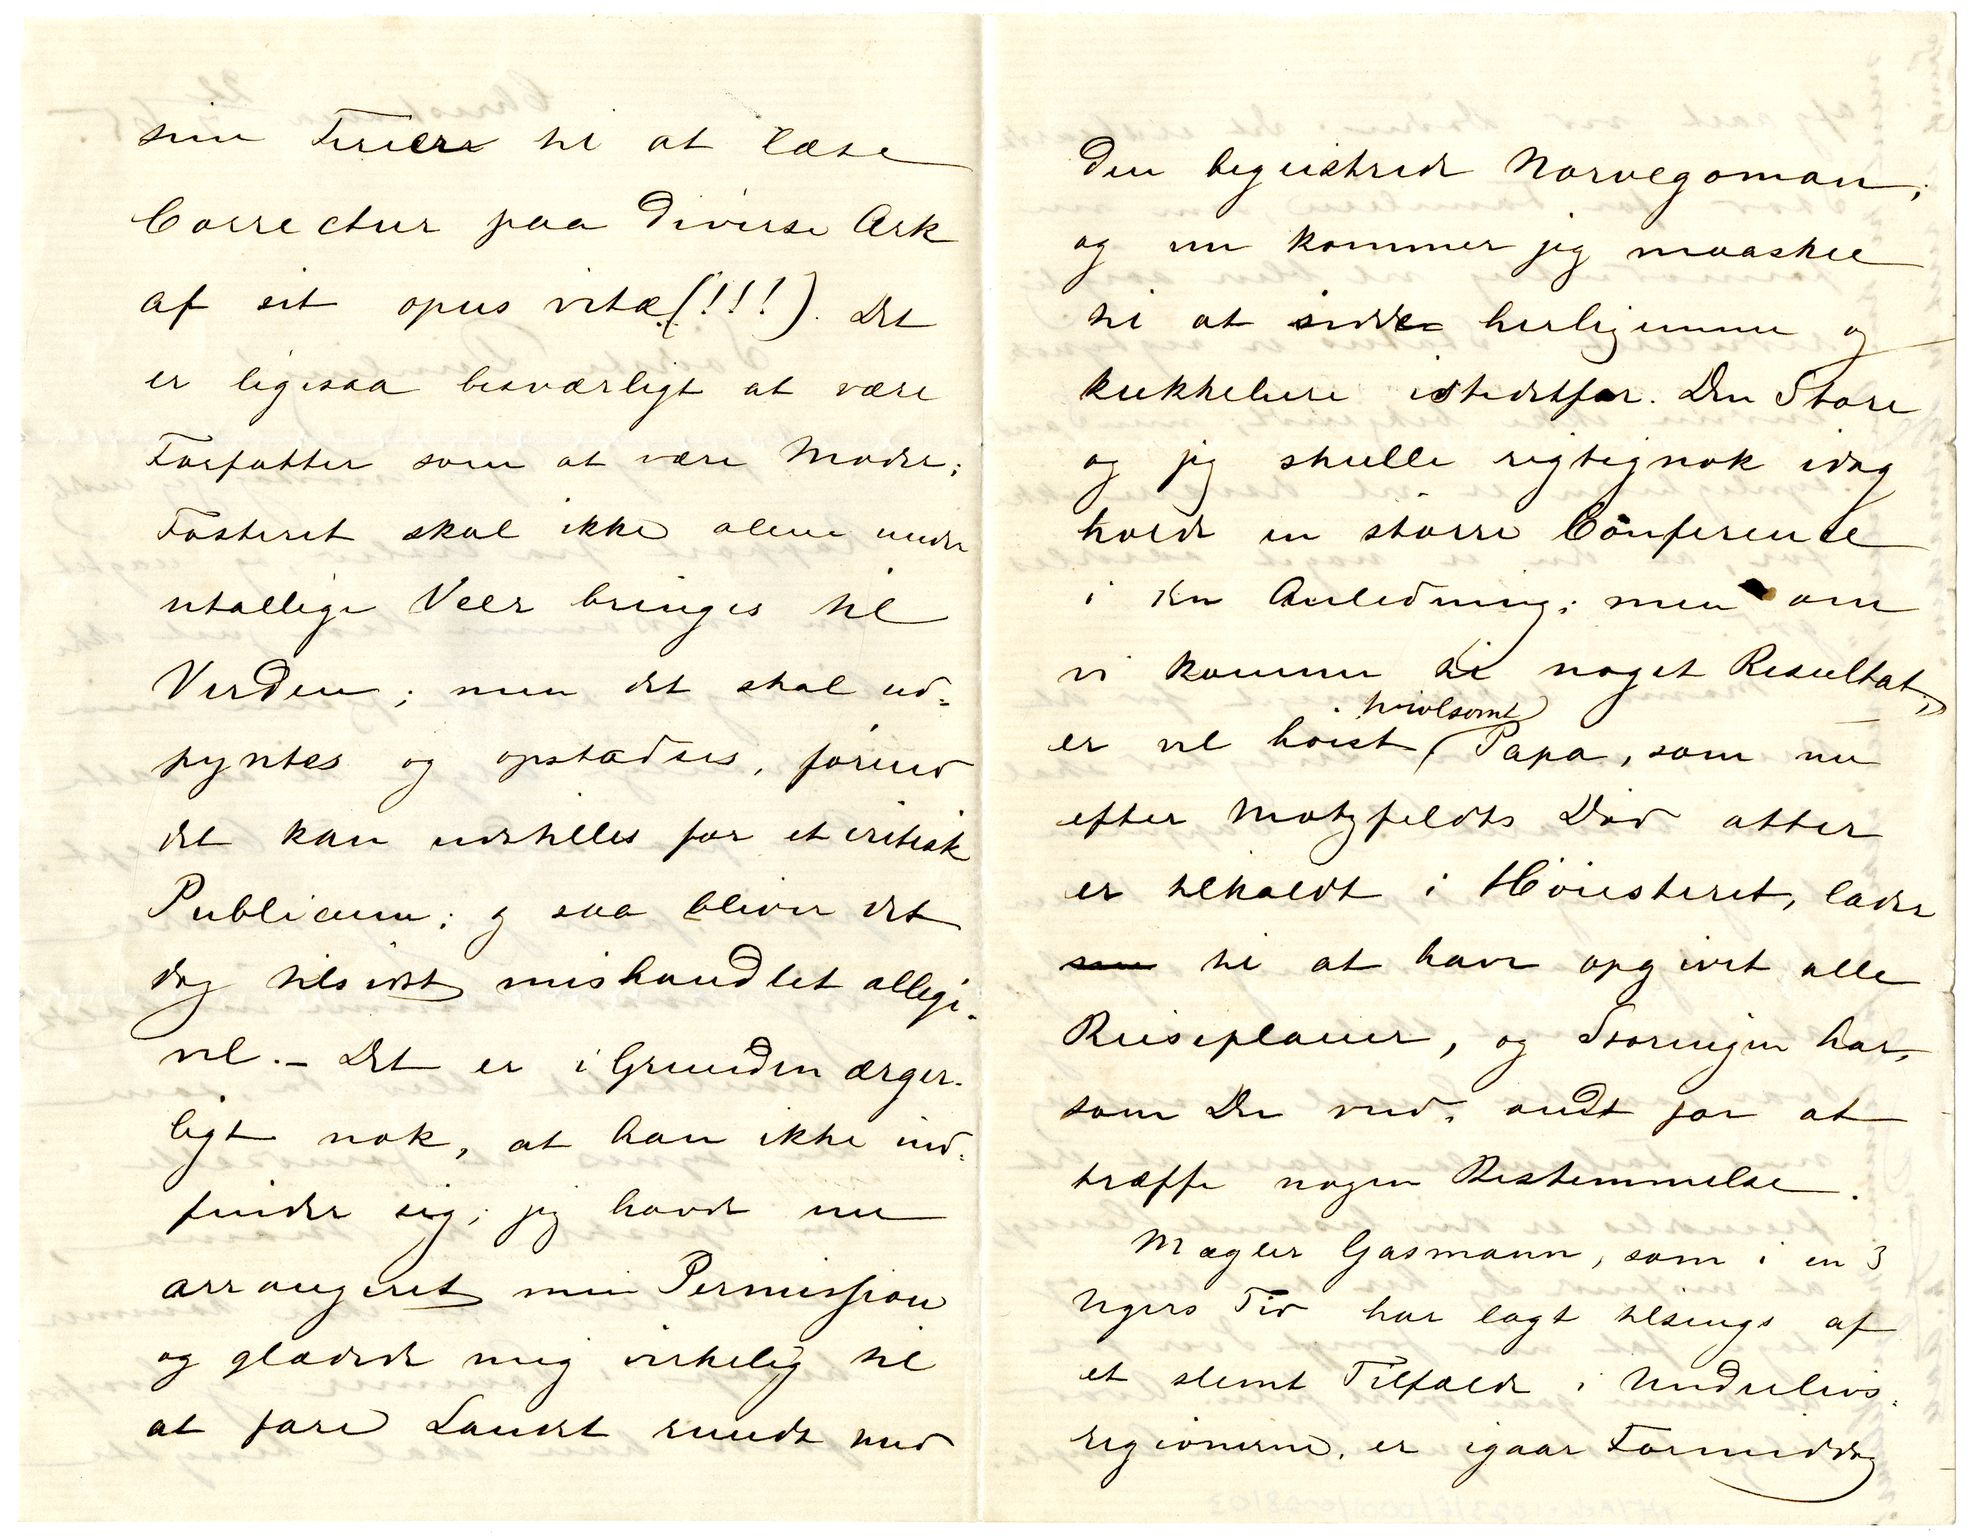 sine Ferier til at læse
Correctur paa diverse Ark
af sit opus vitæ (!!!). Det
er ligesaa besværligt at være
Forfatter som at være Moder;
Fosteret skal ikke alene under
utallige Veer bringes til
Verden; men det skal ud-
pyntes og opstadses, førend
det kan udstilles for et critisk
Publicum; og saa bliver det
dog tilsidst mishandlet allige-
vel. – Det er i Grunden ærger-
ligt nok, at han ikke ind-
finder sig; jeg havde nu
arrangeret min Permission
og glædede mig virkelig til
at fare Landet rundt med
den begeistrede Norvegoman;
og nu kommer jeg maaskee
til at sidde herhjemme og
kukkelure istedetfor. Den Store
og jeg skulle rigtignok idag
holde en større Conference
i den Anledning; men om
vi komme til noget Resultat,
er vel høist hvilsomt Papa, som nu
efter Motzfeldts Død atter
er tilkaldt i Høiesteret, lader
som til at have opgivet alle
Reiseplaner, og Storingen har,
som Du veed, ondt for at
træffe nogen Bestemmelse.
Mægler Gasmann, som i en 3
Ugers Tid har lagt tilsengs af
et slemt Tilfælde i Underlivs-
regionerne, er igaar Formiddag